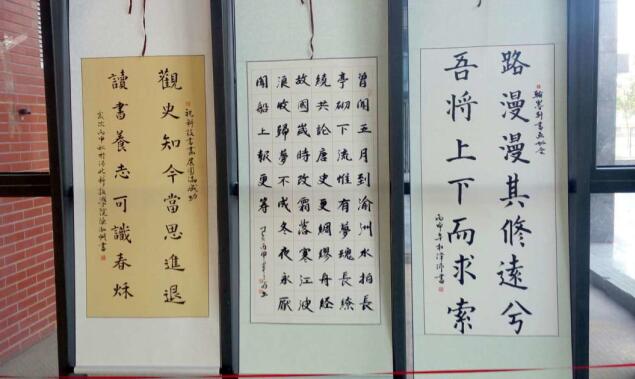 觀史知今當思進退
讀書養志可識春秋
祝科技書畫展圓滿成功
曾聞五月到渝州水拍長
亭砌下流惟有夢魂長繚
繞共論唐史更綢繆舟經
故國歲時改霜落寒江波
浪收歸夢不成冬夜永厭
聞船上報更籌
路漫漫其修遠兮
吾將上下而求索